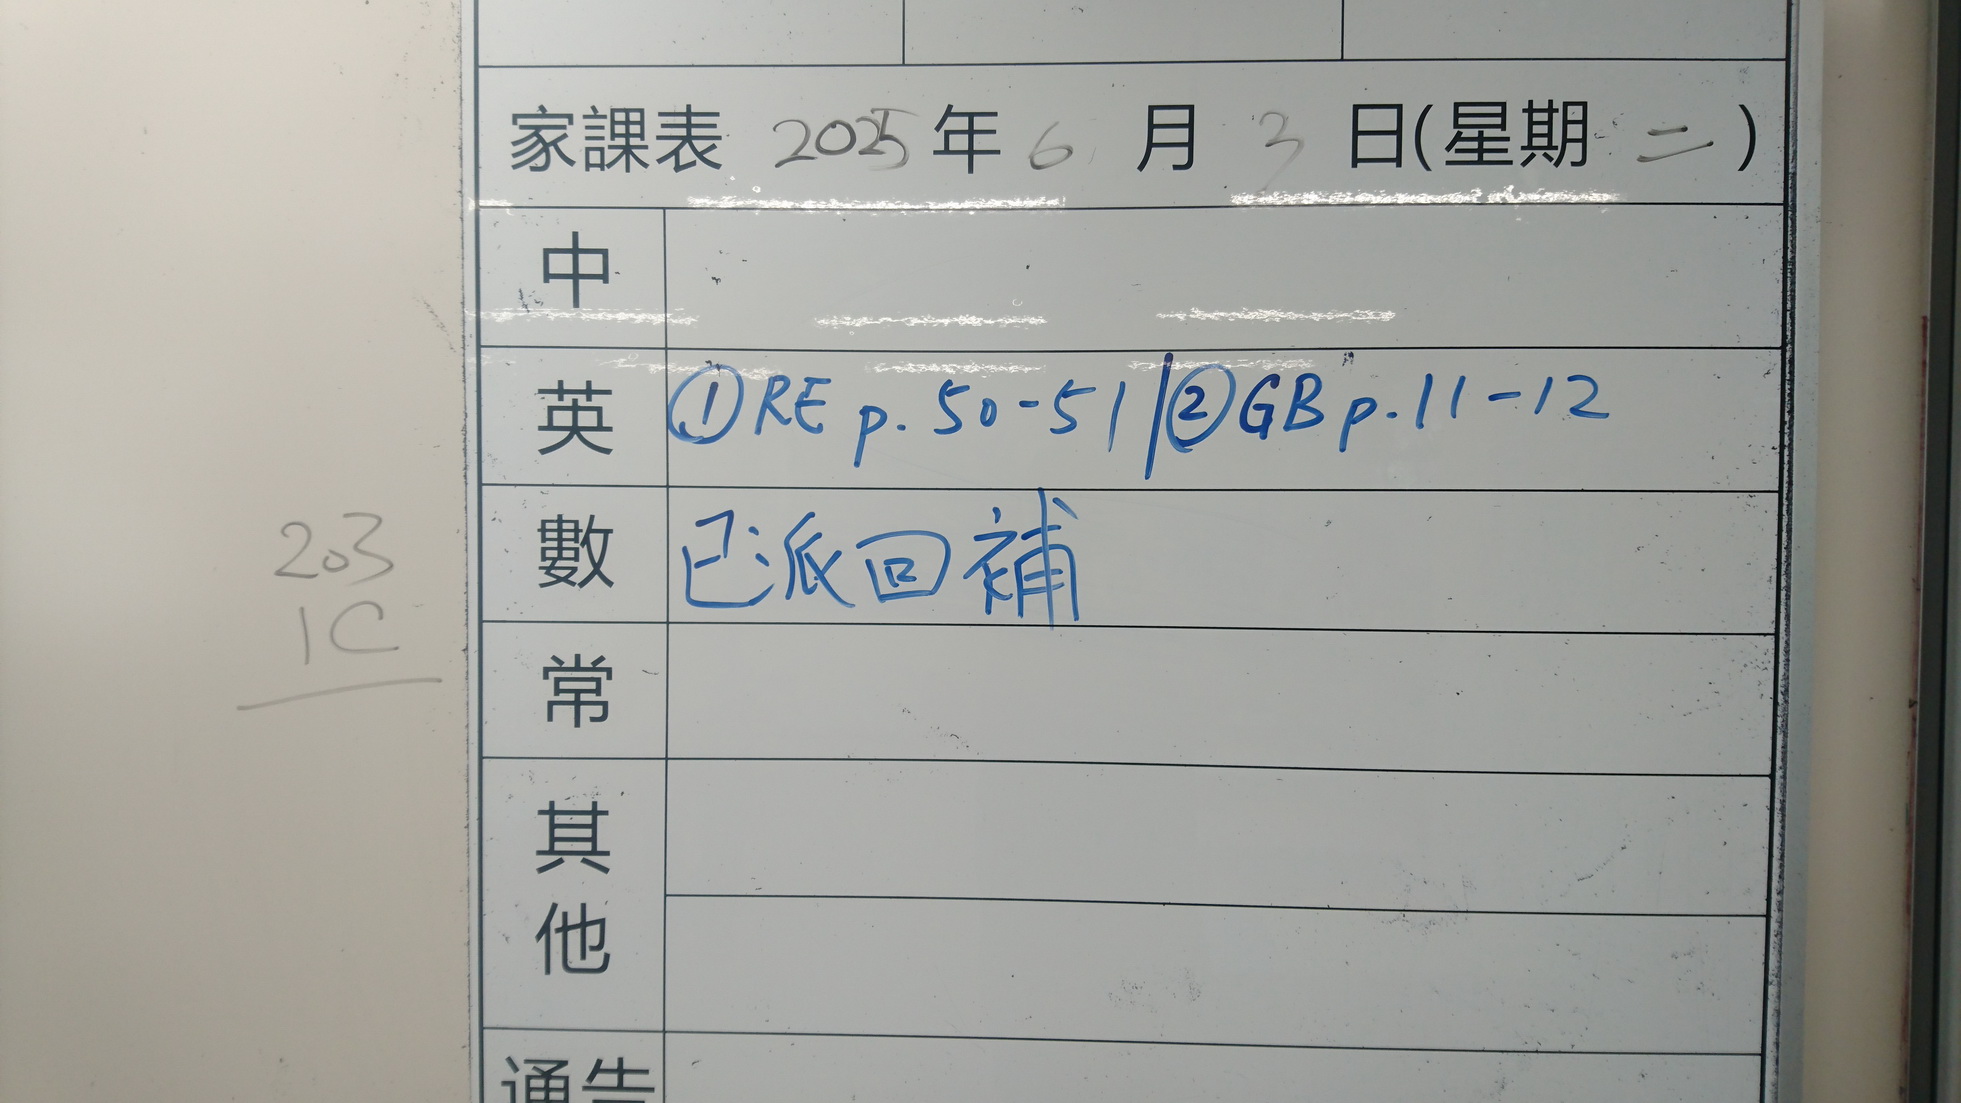 家課表 2025年6月3日(星期二)
中
英 ①RE p. 50-51/②GB p.11-12
數 已派回補
203
1C
常
其他
通告